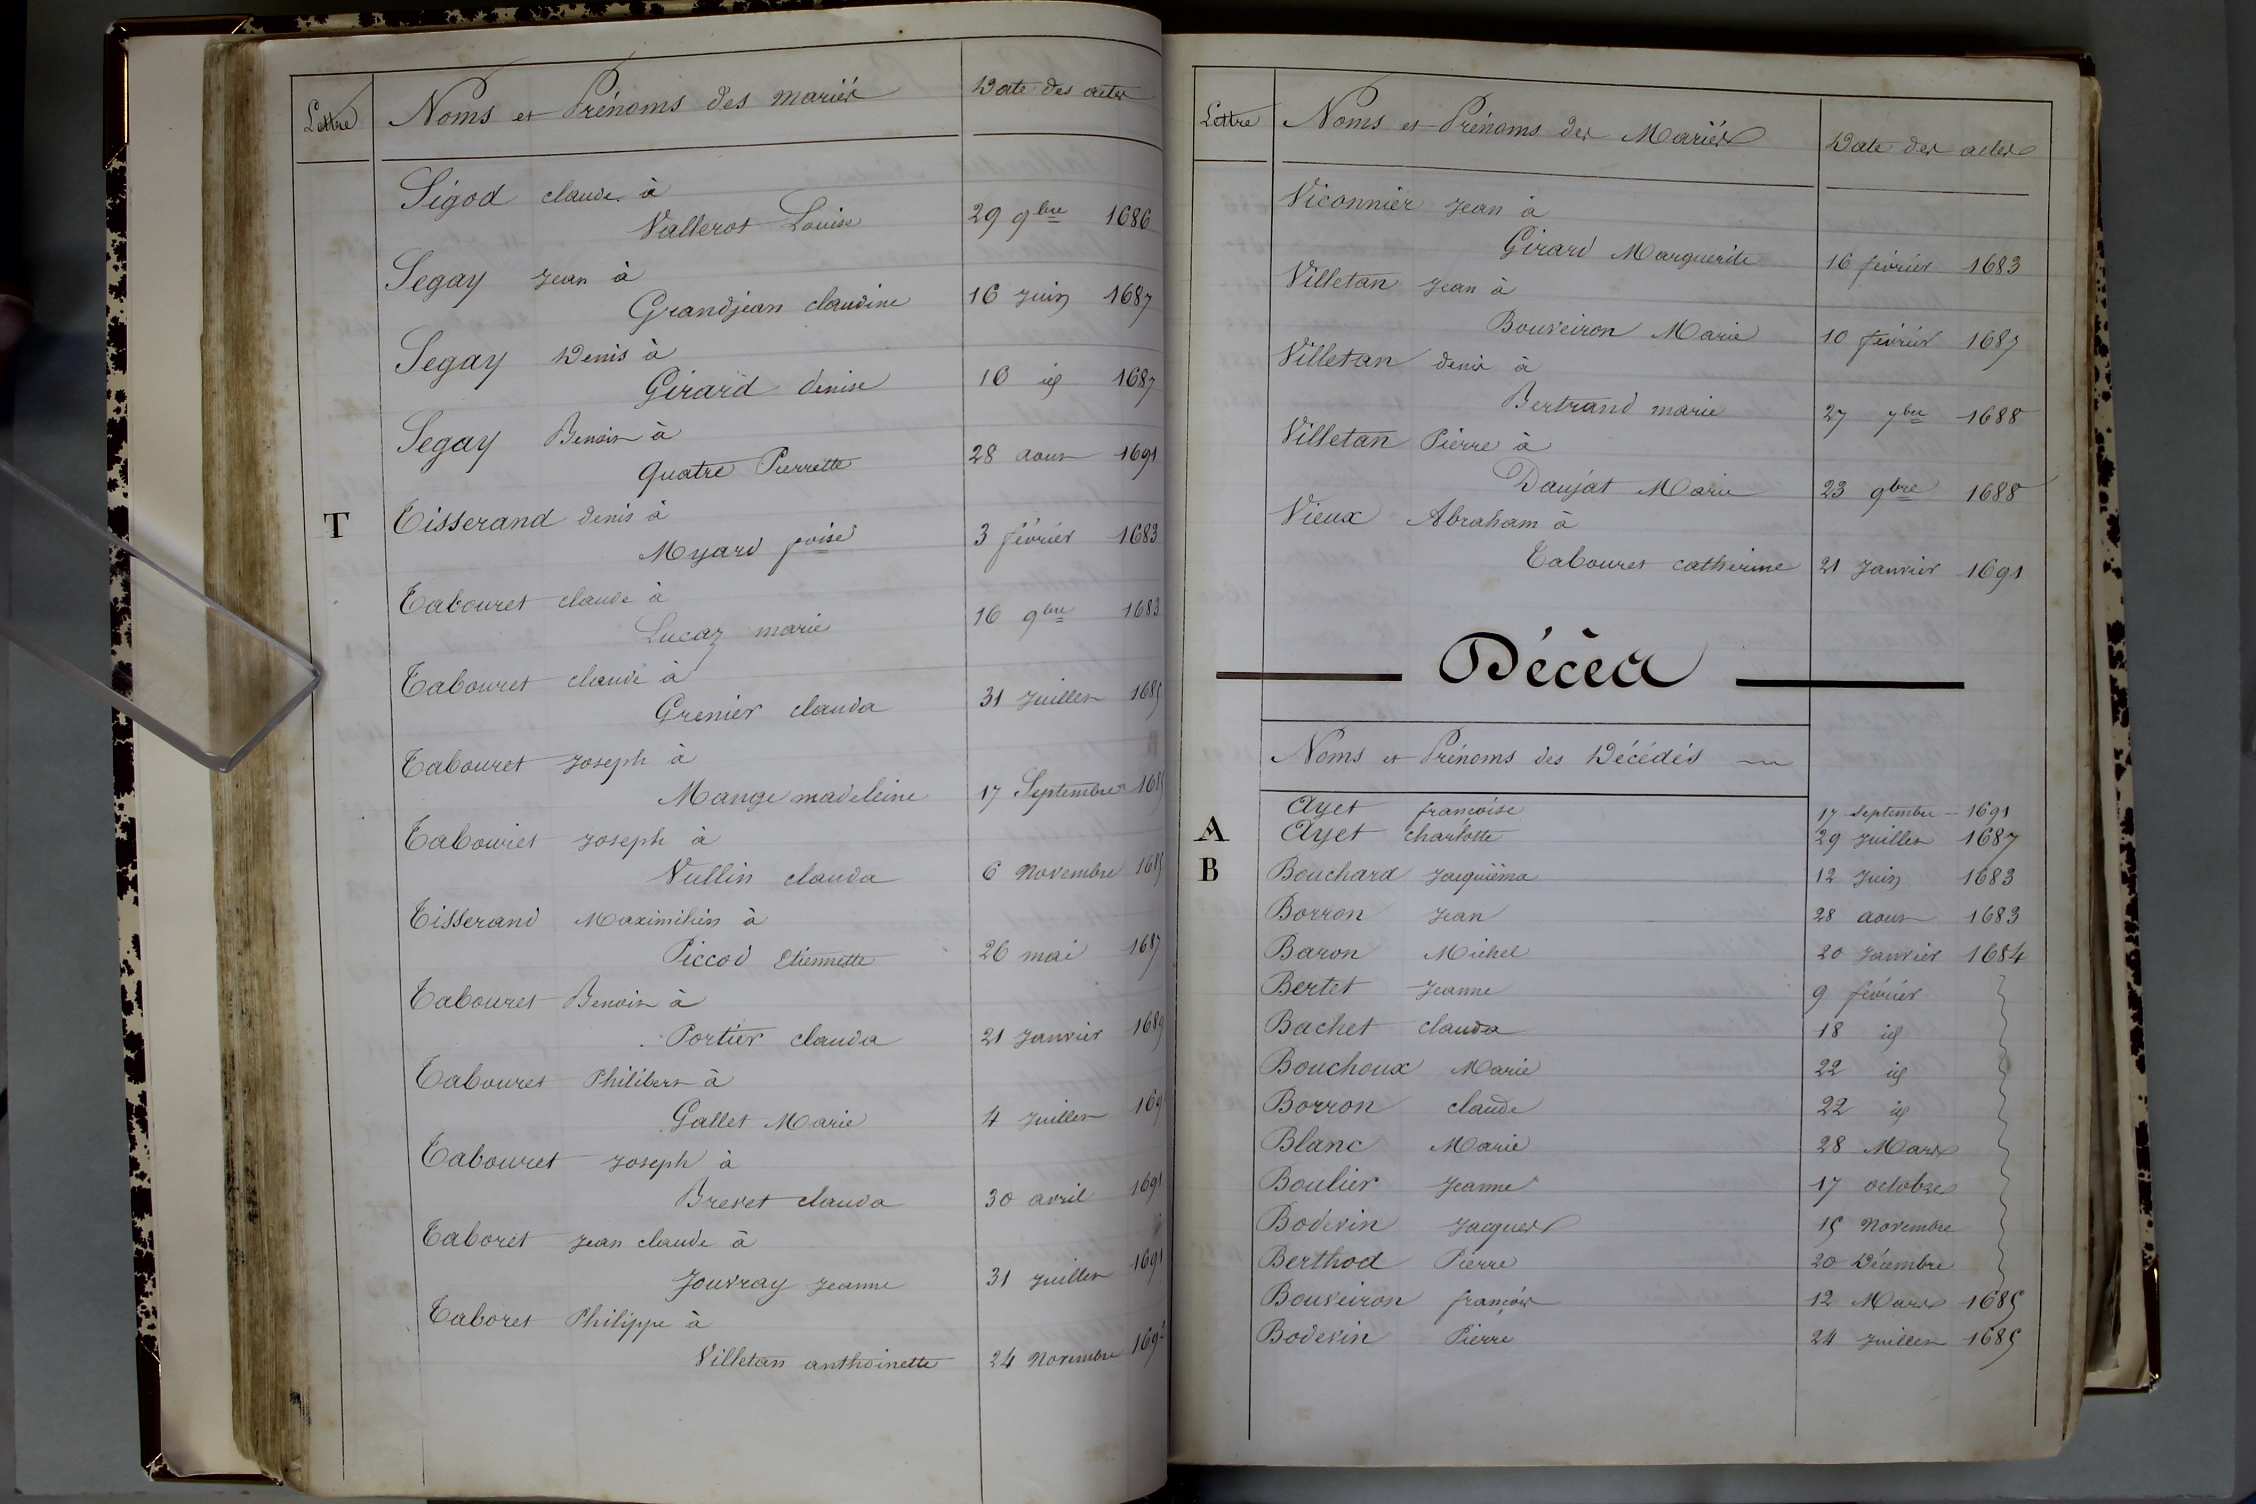 Lettre Noms et Prénoms des mariés Date des actes
Sigod claude à
Vallerot Louise 29 9bre 1686
Segay Jean à
Grandjean claudine 16 Juin 1687
Segay Denis à
Girard denise 16 id 1687
Segay Benoit à
Quatre Pierrette 28 aout 1691
T Tisserand denis à
Myard foise 3 février 1683
Tabouret claude à
Lucaz marie 16 9bre 1683
Tabouret claude à
Grenier clauda 31 Juillet 1685
Tabouret Joseph à
Mange madeleine 17 Septembre 1685
Tabouret Joseph à
Vullin clauda 6 Novembre 1685
Tisserand Maximilien à
Piccod Etiennette 26 mai 1687
Tabouret Benoit à
Portier clauda 21 Janvier 1689
Tabouret Philibert à
Gallet Marie 4 Juillet
Tabouret Joseph à
Brevet clauda 30 avril 1691
Taboret Jean claude à
Jouvray Jeanne 31 Juillet 1691
Taboret Philippe à
Villetan anthoinette 24 Novembre
Lettre Noms et Prénoms des Mariés Date des actes
Viconnier Jean à
Girard Marguerite 16 février 1683
Villetan Jean à
Bouveiron Marie 10 février 1685
Villetan denis à
Bertrand marie 27 7bre 1688
Villetan Pierre à
Daujat Marie 23 9bre 1688
Vieux Abraham à
Tabouret catherine 21 Janvier 1691
Décès
Noms et Prénoms des Décédés
Ayet françoise 17 Septembre 1691
A Ayet charlotte 29 Juillet 1687
B Bouchard Jacquëma 12 Juin 1683
Borron Jean 28 aout 1683
Baron Michel 20 Janvier 1684
Bertet Jeanne 9 février
Bachet clauda 18 id
Bouchoux Marie 22 id
Borron claude 22 id
Blanc Marie 28 Mars
Boulier Jeanne 17 octobre
Bodevin Jacques 15 Novembre
Berthod Pierre 20 Décembre
Bouveiron françois 12 Mars 1685
Bodevin Pierre 24 Juillet 1685